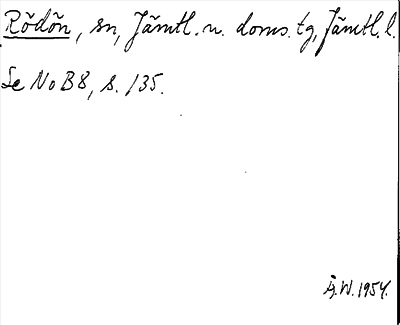 Rödön, sn, Jämtl. n. doms. tg, Jämtl. l.
Se NoB8, s. 135.
Å.W. 1954.